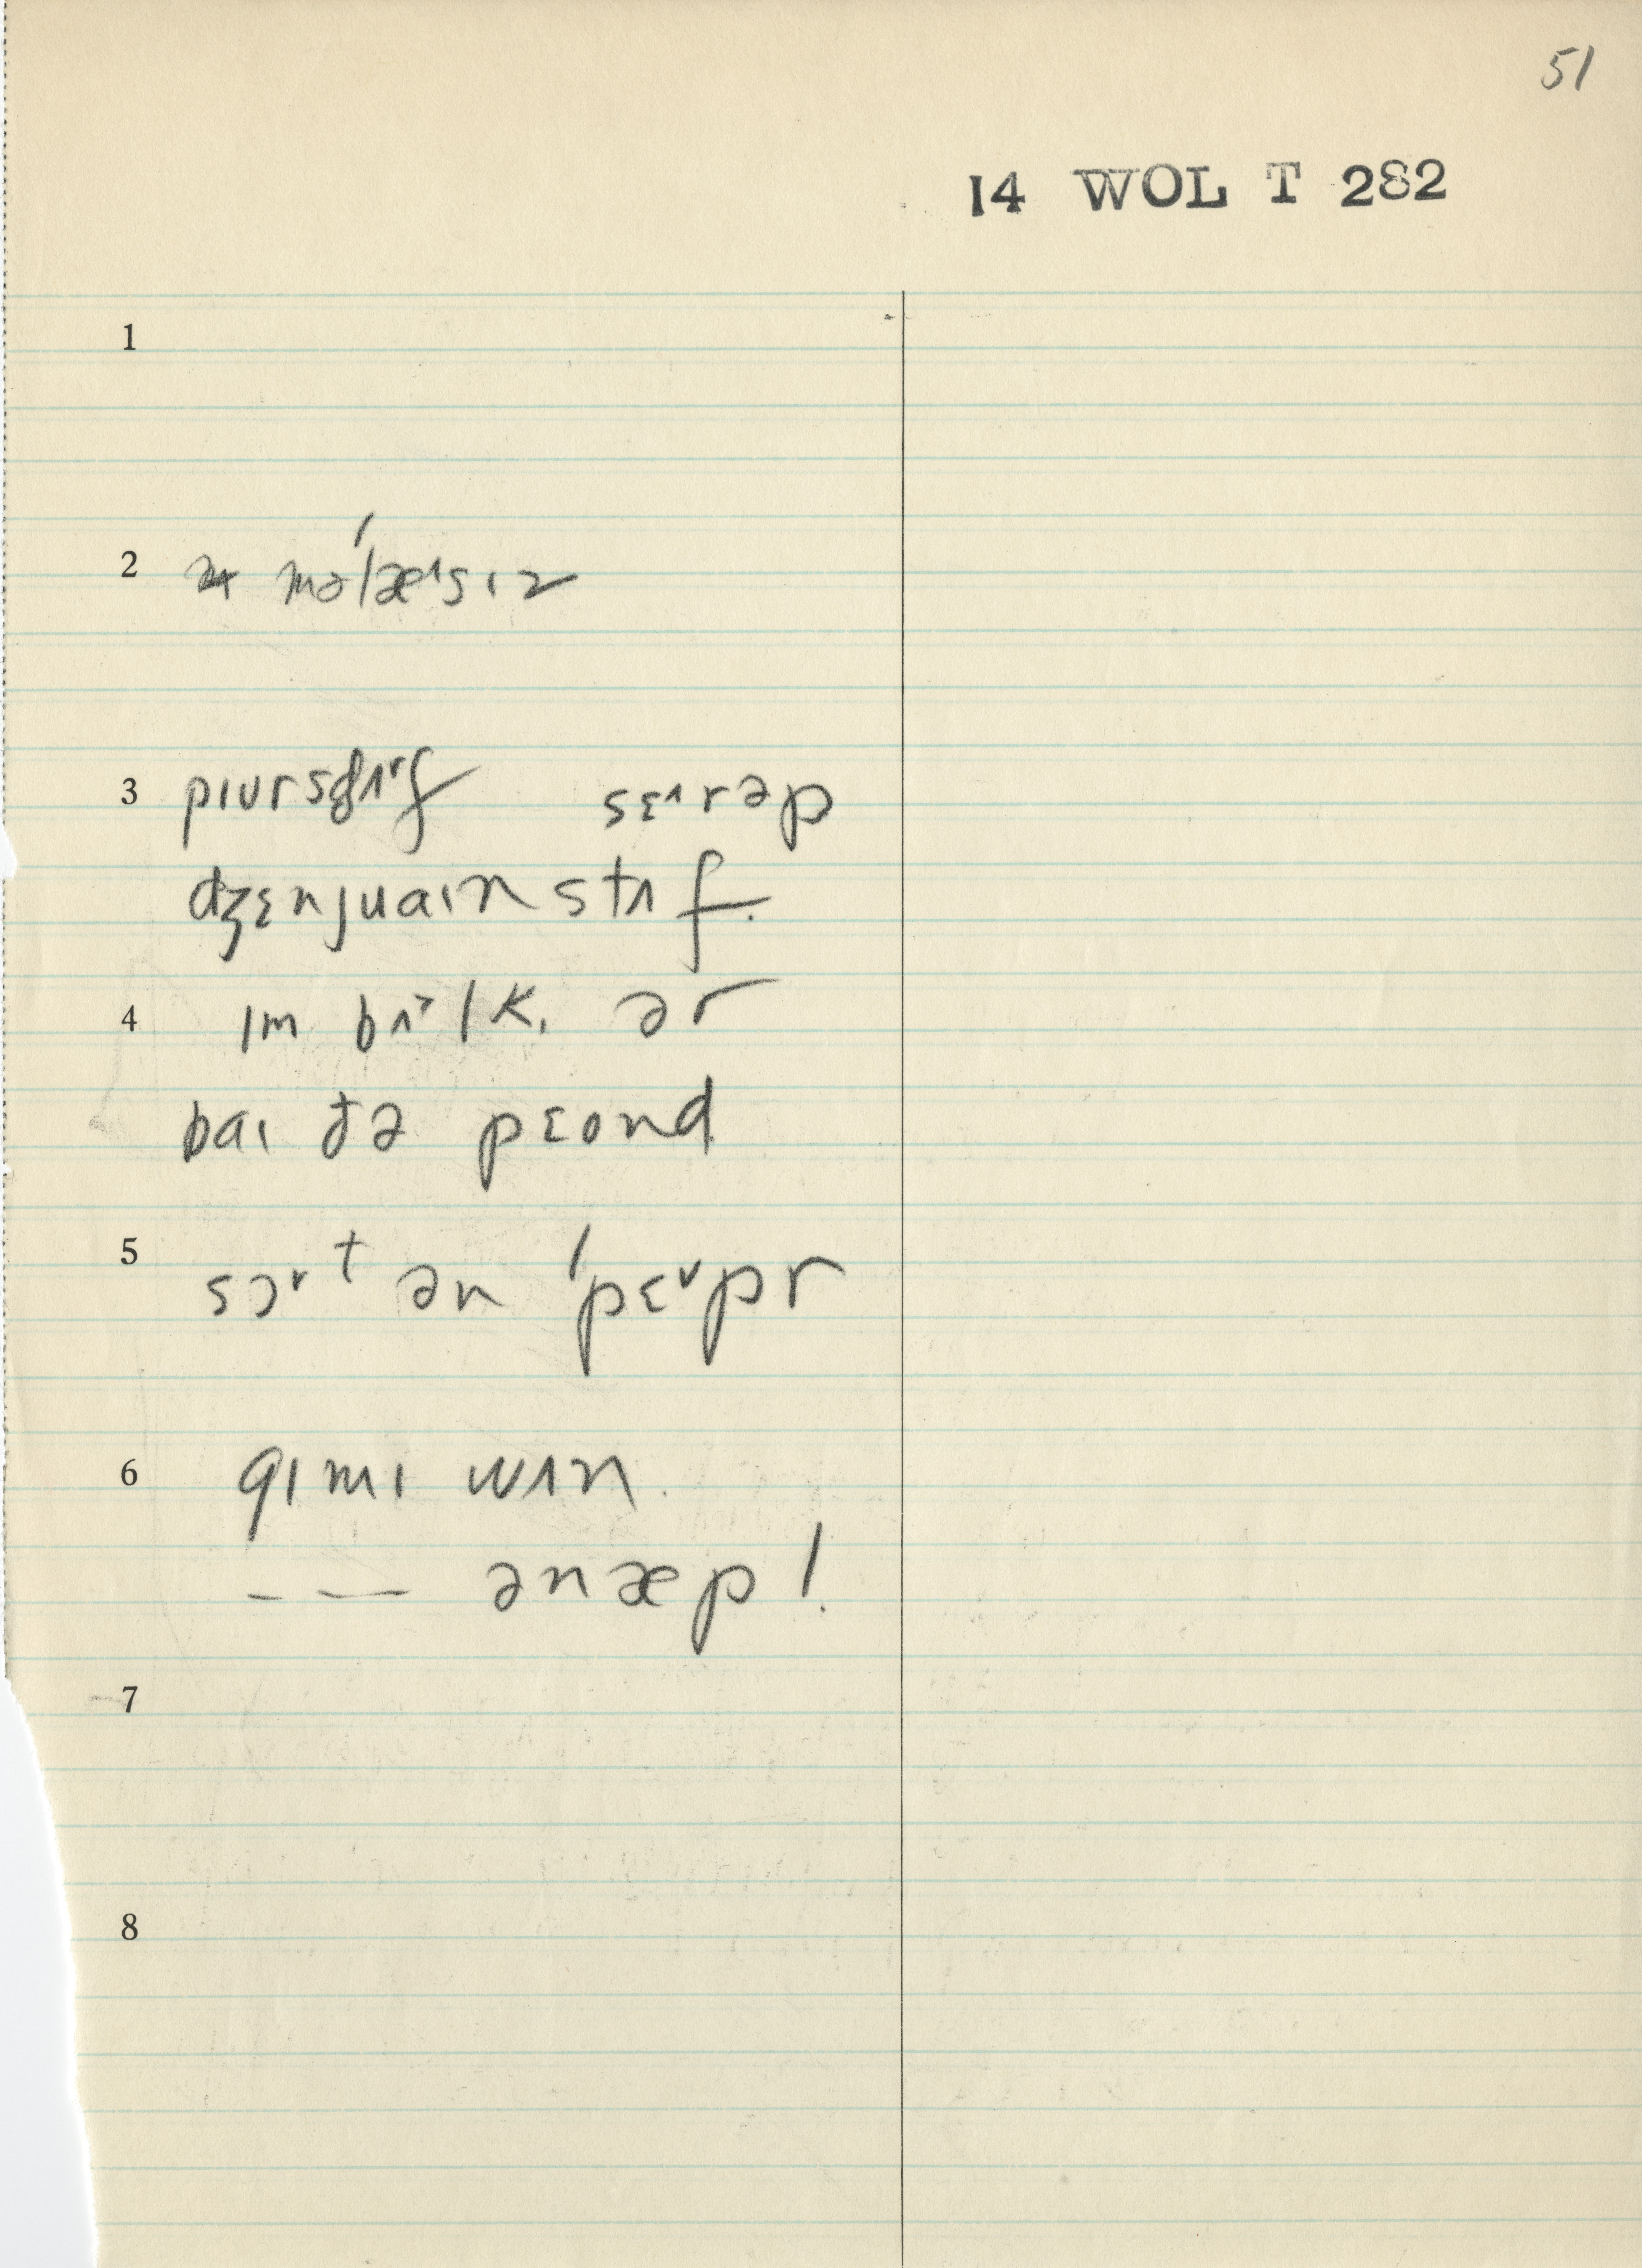 51
14 WOL T 282
1
2 məˈlæ˄sɪz
3 sɛ˄rəp
dʒɛnjuaɪn stʌf.
4 ɪm bʌ˃lk, ər
baɪ ðə pɛond
5 sɔ˅t ən ˈpɛ˅pr
6 gɪmɪ wɪn.
— — ənæp!
7
8